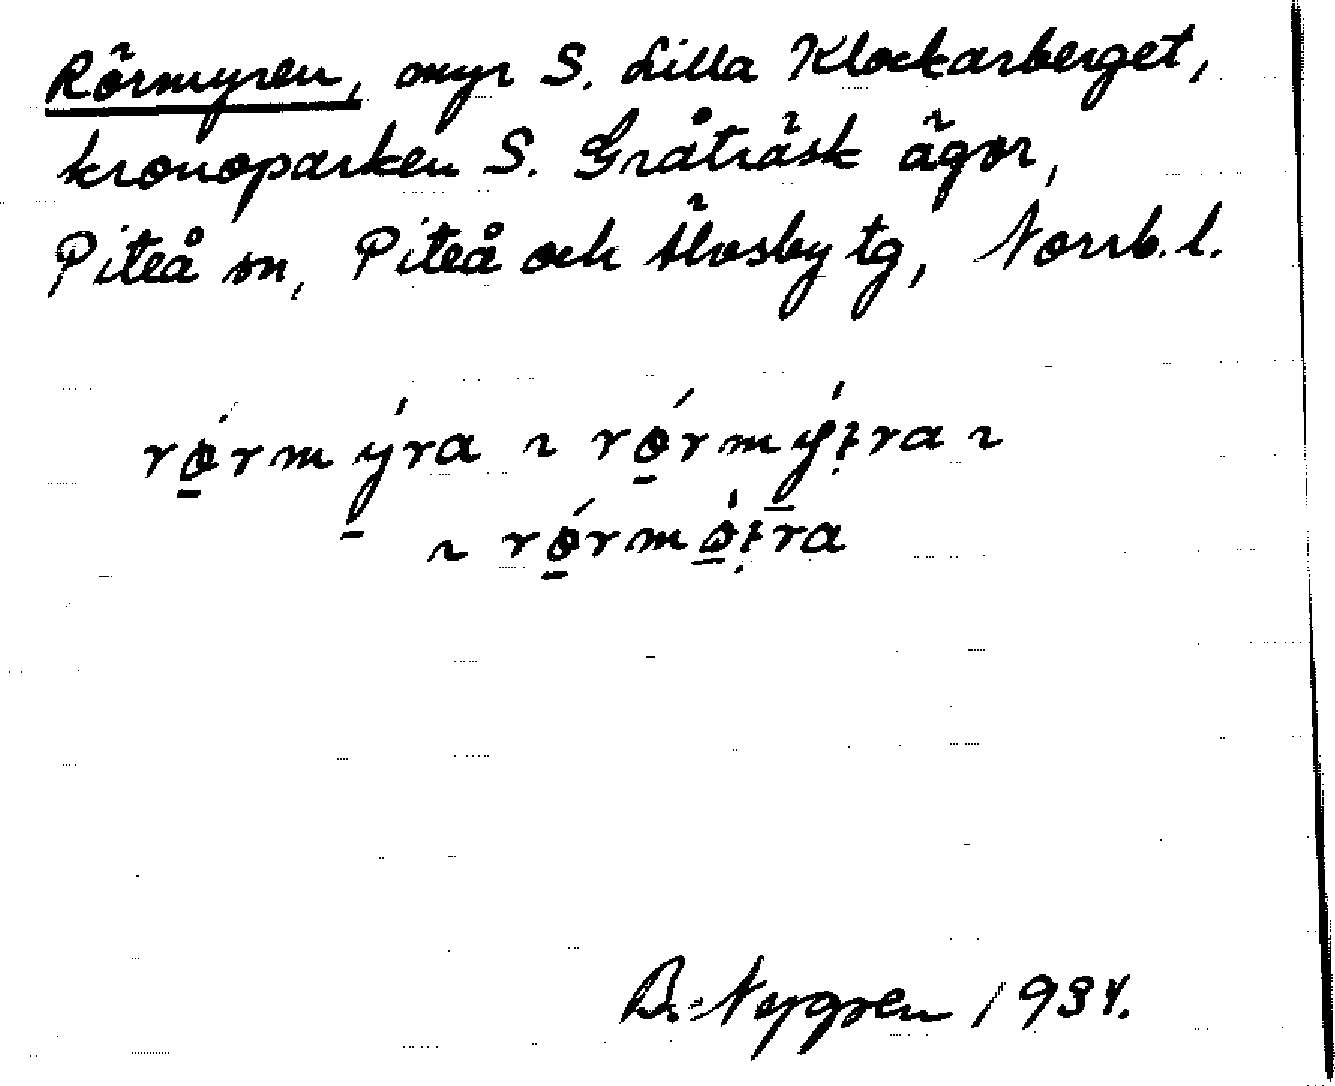 Rörmyren, myr S. Lilla Klockarberget,
kronoparken S. Gråträsk ägor,
Piteå sn, Piteå och Älvsby tg, Norrb. l.
rǿ̱rm ý̱ra ~ rǿ̱rmý̱ꞎra ~
~ rǿ̱rmǿ̱ꞎra
B. Nygren 1934.